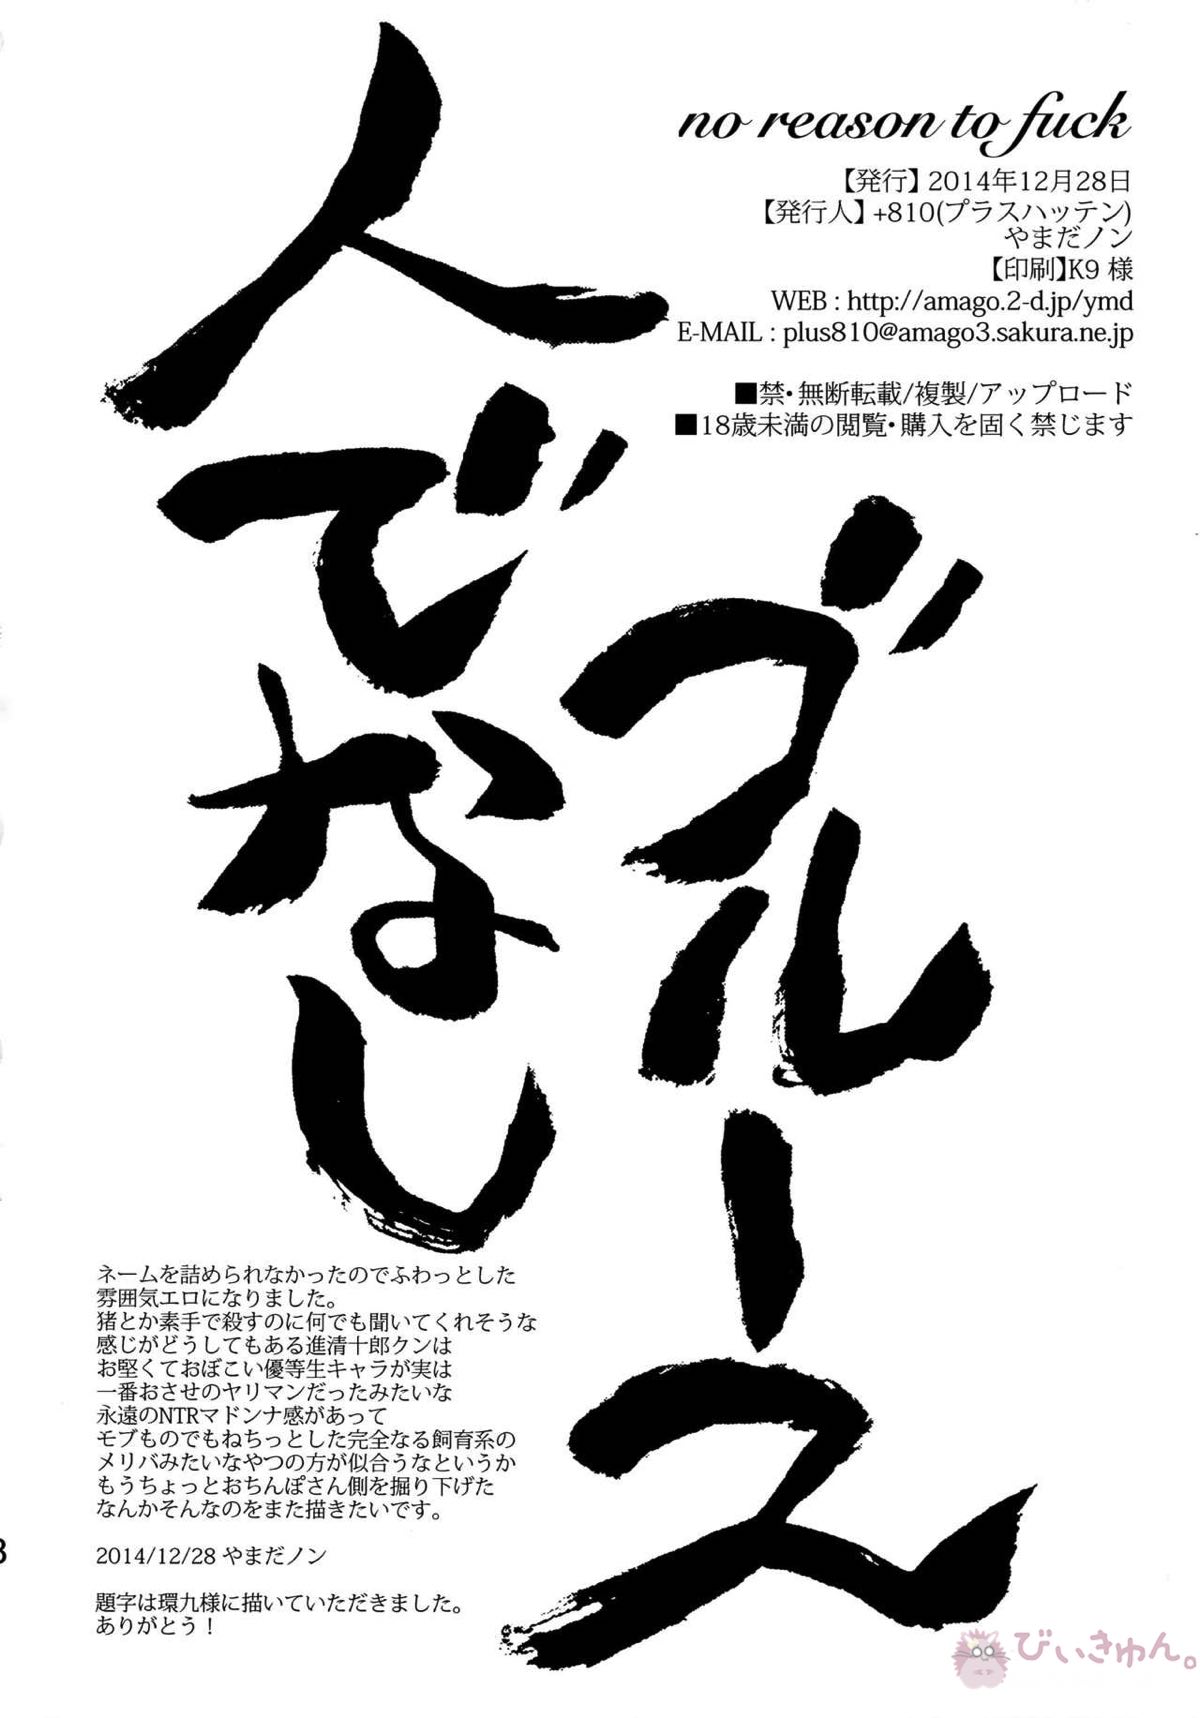 no reason to fuck
【発行】2014年12月28日
【発行人】+810(プラスハッテン)
やまだノン
【印刷】K9 様
WEB : http://amago.2-d.jp/ymd
E-MAIL : plus810@amago3.sakura.ne.jp
■禁・無断転載/複製/アップロード
■18歳未満の閲覧・購入を固く禁じます
人でなし
ブルース
ネームを詰められなかったのでふわっとした
雰囲気エロになりました。
猪とか素手で殺すのに何でも聞いてくれそうな
感じがどうしてもある進清十郎クンは
お堅くておぼこい優等生キャラが実は
一番おさせのヤリマンだったみたいな
永遠のNTRマドンナ感があって
モブものでもねちっとした完全なる飼育系の
メリバみたいなやつの方が似合うなというか
もうちょっとおちんぽさん側を掘り下げた
なんかそんなのをまた描きたいです。
2014/12/28 やまだノン
題字は環九様に描いていただきました。
ありがとう！
びぃきゅん。